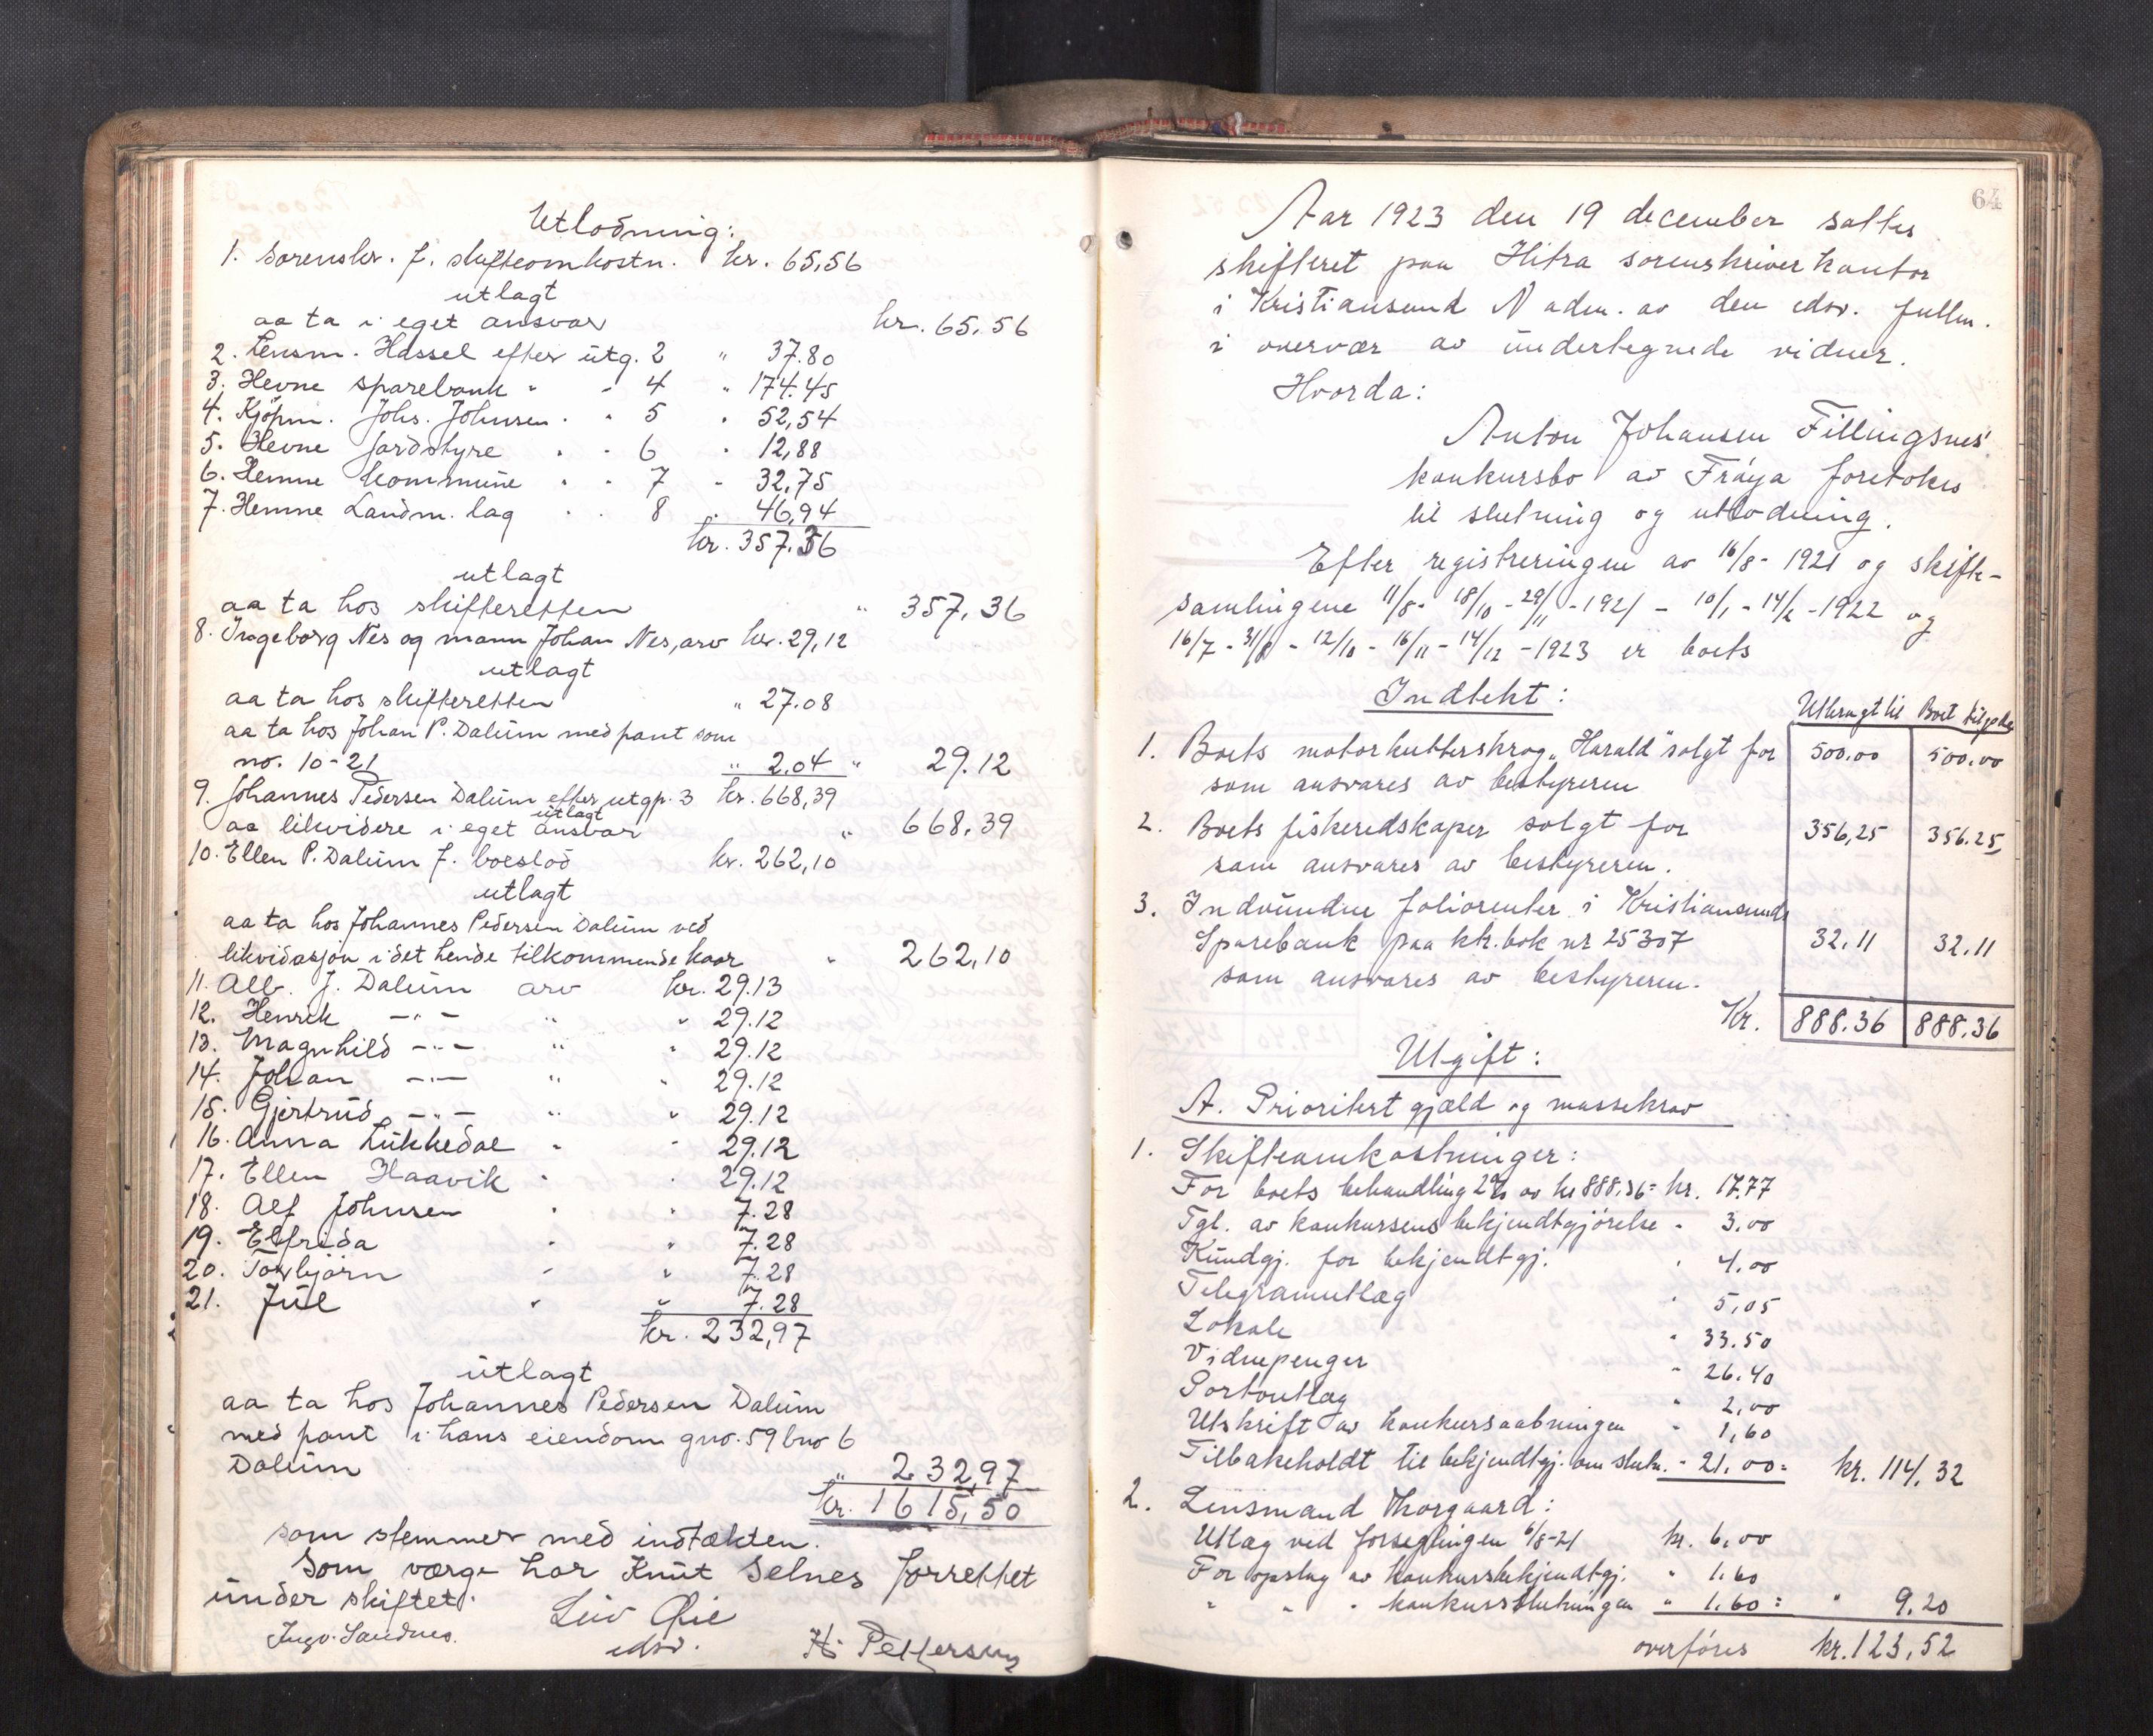 Utlodning:
1. Sorenskr. f. skifteomkostn. kr. 65,56
utlagt
aa ta i eget ansvar kr. 65,56
2. Lensm. Hassel efter utg. 2 " 37.80
3. Hevne sparebank " - 4 " 174.45
4. Kjøpm. Johs. Johnsen . " 5 " 52,54
5. Hevne jordstyre . - 6 " 12,88
6. Hemne kommune " . 7 - 32,75
7. Hemne Landm. lag . . 8 " 46,94
kr. 357.36
utlagt
aa ta hos skifteretten " 357,36
8. Ingeborg Nes og mann Johan Nes, arv kr. 29,12
utlagt
aa ta hos skifteretten " 27.08
aa ta hos Johan P. Dalum med pant som
no. 10-21 " 2.04 " 29.12
9. Johannes Pedersen Dalum efter utgp. 3 kr. 668,39
utlagt
aa likvidere i eget ansvar " 668,39
10. Ellen P. Dalum f. boeslod kr. 262,10
utlagt
aa ta hos Johannes Pedersen Dalum ved
likvidasjon i det hende tilkommende kaar " 262,10
11. Alb. J. Dalum arv kr. 29.13
12. Henrik -"- " " 29.12
13. Magnhild -"- " " 29.12
14. Johan -"- " " 29.12
15. Gjertrud -"- " " 29.12
16. Anna Lukkedal " " 29.12
17. Ellen Haavik " " 29.12
18. Alf Johnsen " " 7.28
19. Elfrida " " 7.28
20. Torbjørn " " 7.28
21. Jul " " 7.28
kr. 232,97
utlagt
aa ta hos Johannes Pedersen Dalum
med pant i hans eiendom gno. 59 bno 6
Dalum " 232,97
kr. 1615,50
som stemmer med indtækten.
Som værge har Knut Selnes forrettet
under skiftet.
Leiv Øie
Ingv. Sandnes. edsv. H. Pettersen
64
Aar 1923 den 19 december sattes
skifteret paa Hitra sorenskriverkontor
i Kristiansund N adm. av den edsv. fullm.
i overvær av undertegnede vidner.
Hvorda:
Anton Johansen Fillingsnes'
konkursbo av Frøya foretokes
til slutning og utlodning.
Efter registreringen av 16/8- 1921 og skifte-
samlingene 11/8- 18/10 - 29/11 - 1921 - 10/1 - 14/2 - 1922 og
16/7 - 31/8 - 12/10 - 16/11 - 14/12 - 1923 er boets
Indtekt: Utbragt til Boet tilgode
1. Boets motorkutterskrog "Harald" solgt for 500.00 500.00
som ansvares av bestyreren
2. Boets fiskeredskaper solgt for 356,25 356.25
som ansvares av bestyreren.
3. Indvundne foliorenter i Kristiansunds
Sparebank paa ktr. bok nr 25307 32.11 32.11
som ansvares av bestyreren.
Kr. 888.36 888.36
Utgift:
A. Prioritert gjæld og massekrav
1. Skifteomkostninger:
For boets behandling 2% av kr 888.36 = kr. 17.77
Tgl. av konkursens bekjendtgjørelse - 3.00
Kundgj. for bekjendtgj. " 4.00
Telegramutlæg " 5,05
Lokale " 33.50
Vidnepenger - 26.40
Portoutlæg " 2,00
Utskrift av konkursaabningen " 1,60
Tilbakeholdt til bekjendtgj. om slutn. - 21,00 = kr. 114,32
2. Lensmand Thorgaard:
Utlæg ved forseglingen 6/8-21 kr. 6,00
For opslag av konkursbekjendtgj. " 1.60
" " " konkursslutningen " 1.60 = " 9,20
overføres kr. 123,52